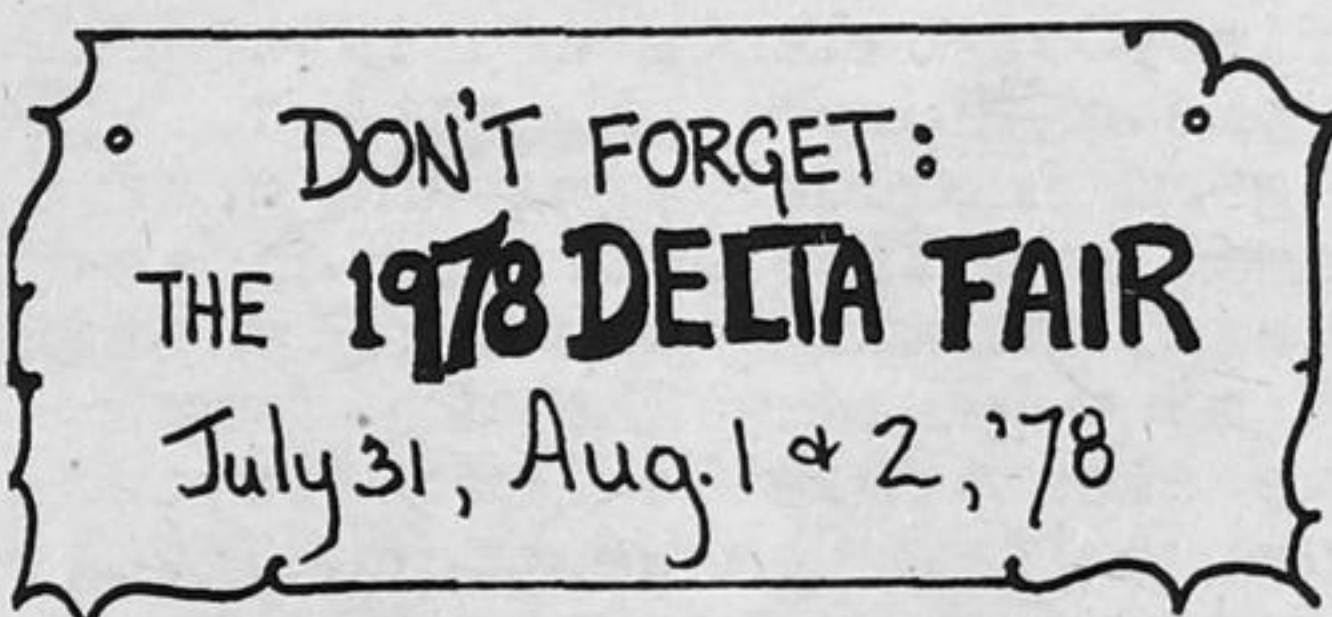 DON'T FORGET:
THE 1978 DELTA FAIR
July 31, Aug. 1 & 2, '78